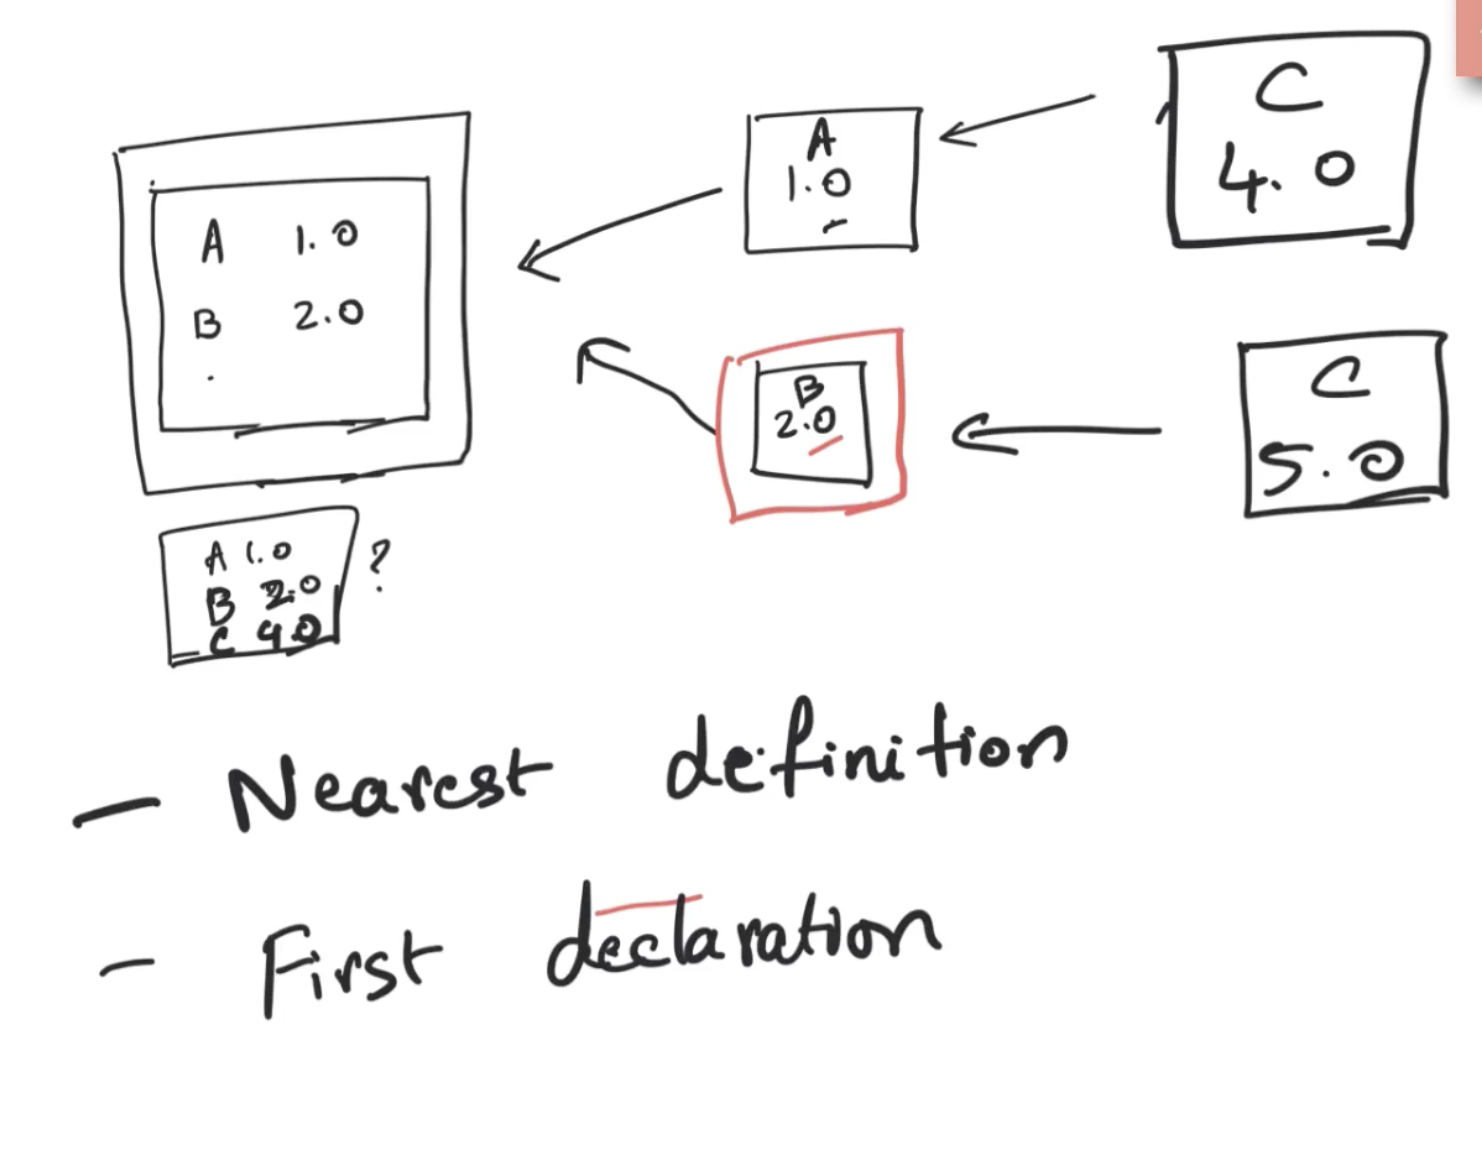 A 1.0
B 2.0
A
1.0
C
4.0
B
2.0
C
5.0
A 1.0
B 2.0
C 4.0
?
- Nearest definition
- First declaration